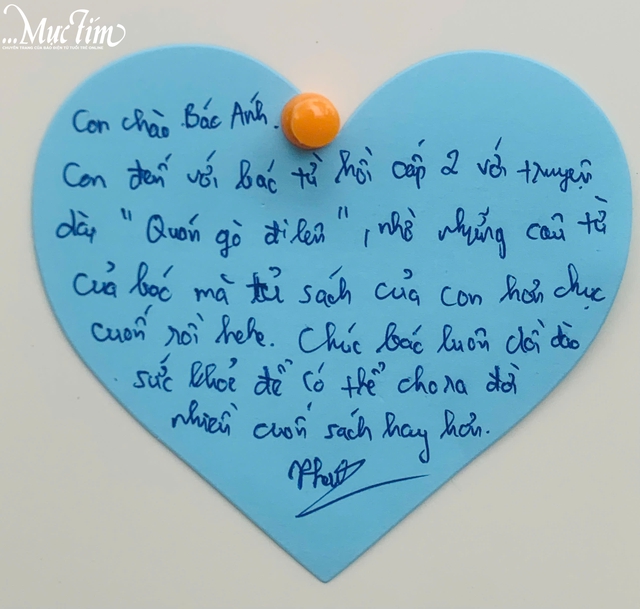 ...Mực Tím
CHUYÊN TRANG CỦA BÁO ĐIỆN TỬ TUỔI TRẺ ONLINE
Con chào Bác Ánh.
Con đến với bác từ hồi cấp 2 với truyện
dài "Quán gò đi lên", nhờ những câu từ
của bác mà tủ sách của con hơn chục
cuốn rồi hehe. Chúc bác luôn dồi dào
sức khoẻ để có thể cho ra đời
nhiều cuốn sách hay hơn.